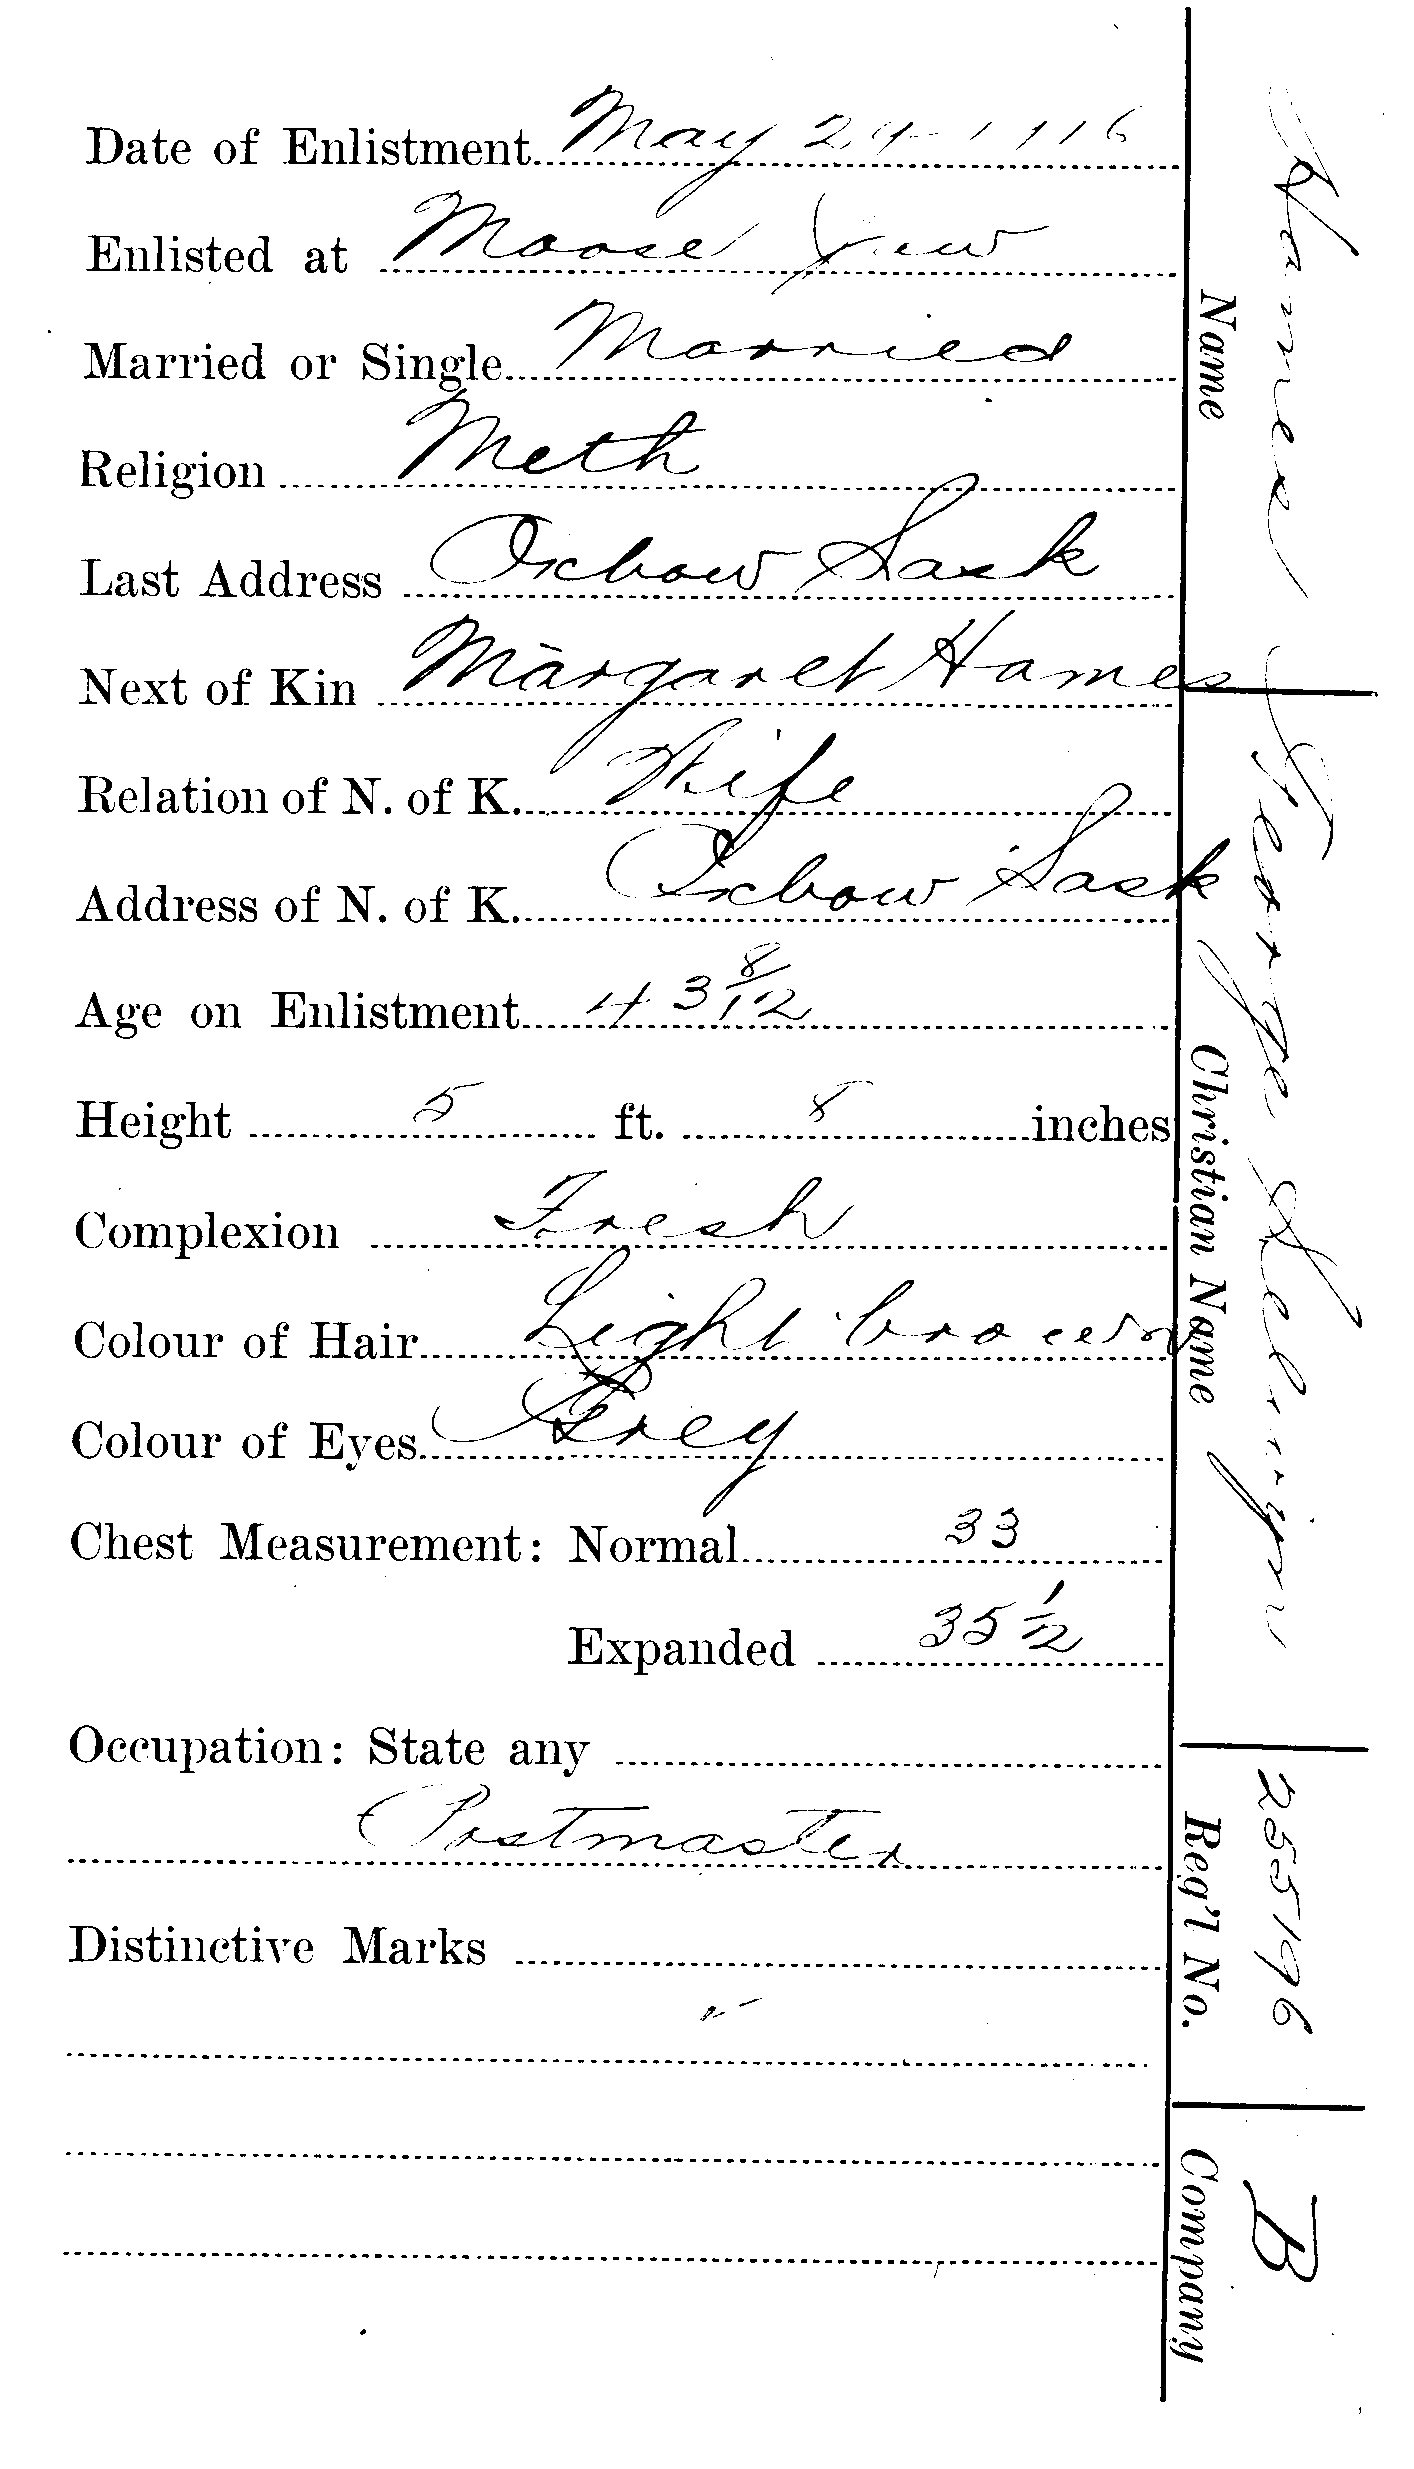 Date of Enlistment May 24 1916
Enlisted at Moose Jaw
Married or Single Married
Religion Meth
Last Address Oxbow Sask
Next of Kin Margaret Hames
Relation of N. of K. Wife
Address of N. of K. Oxbow Sask
Age on Enlistment 43 8/12
Height 5 ft. 8 inches
Complexion Fresh
Colour of Hair Light brown
Colour of Eyes Grey
Chest Measurement: Normal 33
Expanded 35 1/2
Occupation: State any
Postmaster
Distinctive Marks
Name Hames
Christian Name George
Reg'l No. 255196
Company B